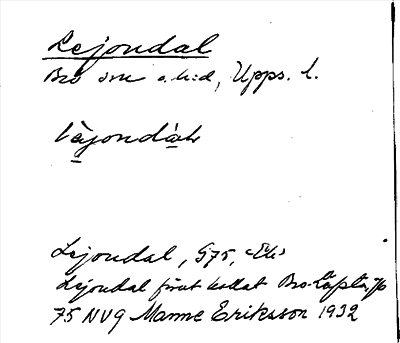 Lejondal
Bro sn o. h:d, Upps. l.
Lejondal, G75, Ek
Lejondal förut kallat Bro-Lapsta, jb
75 NV9 Manne Eriksson 1932